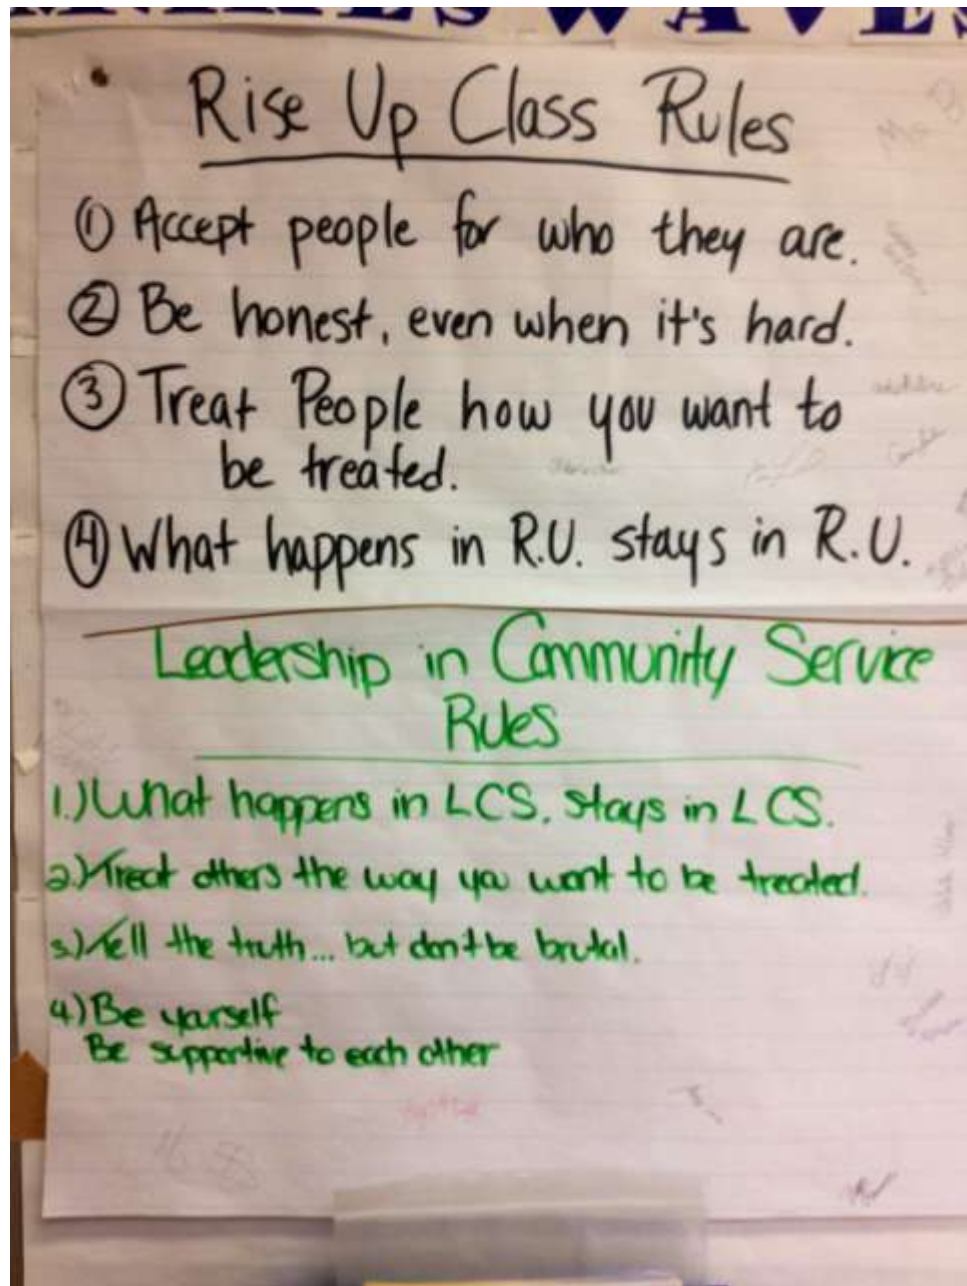 WAVES
Rise Up Class Rules
① Accept people for who they are.
② Be honest, even when it's hard.
③ Treat People how you want to
be treated.
④ What happens in R.U. stays in R.U.
Leadership in Community Service
Rules
1.) What happens in LCS, stays in LCS.
2.) Treat others the way you want to be treated.
3.) Tell the truth... but don't be brutal.
4.) Be yourself
Be supportive to each other